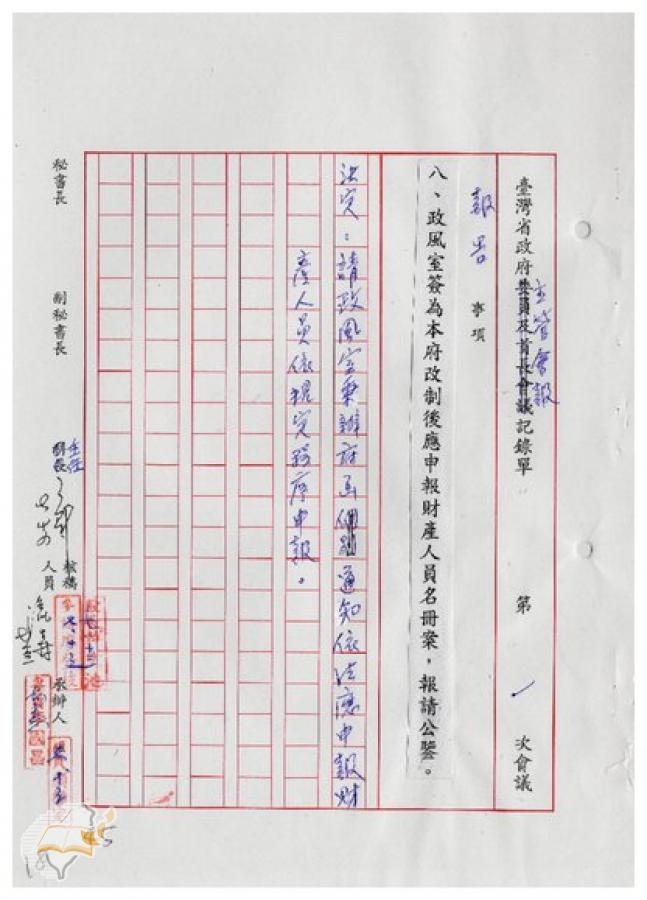 臺灣省政府主管會報委員及首長會議記錄單 第一次會議
報告 事項
八、政風室簽為本府改制後應申報財產人員名冊案，報請公鑒。
決定：請政風室秉辦府函個別通知依法應申報財
產人員依規定程序申報。
秘書長 副秘書長 主任 科長 核稿人員 承辦人